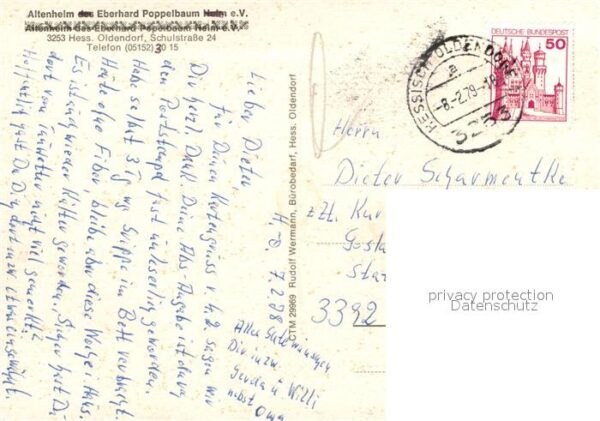 Altenheim des Eberhard Poppelbaum Heim e.V.
Altenheim des Eberhard Poppelbaum Heim e.V.
3253 Hess. Oldendorf, Schulstraße 24
Telefon (05152) 20 15
3
DEUTSCHE BUNDESPOST
50
HESSISCH OLDENDORF
a
-8.-2.79-18
3253
Herrn
Dieter
zzt. Kur
3392
H-O. 7.2.
Lieber Dieter,
für Deinen Kartengruss v. 4.2. sagen wir
Dir herzl. Dank. Deine Abs-Angabe ist durch
den Poststempel fast unleserlich geworden.
Habe selbst 3 Tg wg Grippe im Bett verbracht.
Heute ohne Fieber bleibe aber diese Woche i. Haus.
Es ist mal wieder kälter geworden, sicher hast Du
dort vom nicht viel gemerkt?
Hoffentlich hast Du Dich dort inzw. etwas
Alles Gute wünschen
Dir inzw.
Gerda u. Willi
nebst Oma
CTM 29969 Rudolf Wermann, Bürobedarf, Hess. Oldendorf
privacy protection
Datenschutz